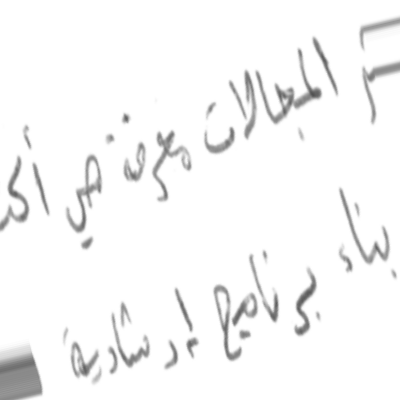 المجالات معرفة في أكـ
بناء برنامج إرشادية